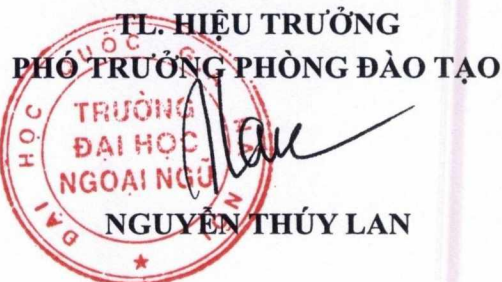 TL. HIỆU TRƯỞNG
PHÓ TRƯỞNG PHÒNG ĐÀO TẠO
ĐẠI HỌC QUỐC
TRƯỜNG
ĐẠI HỌC
NGOẠI NGỮ
NGUYỄN THÚY LAN